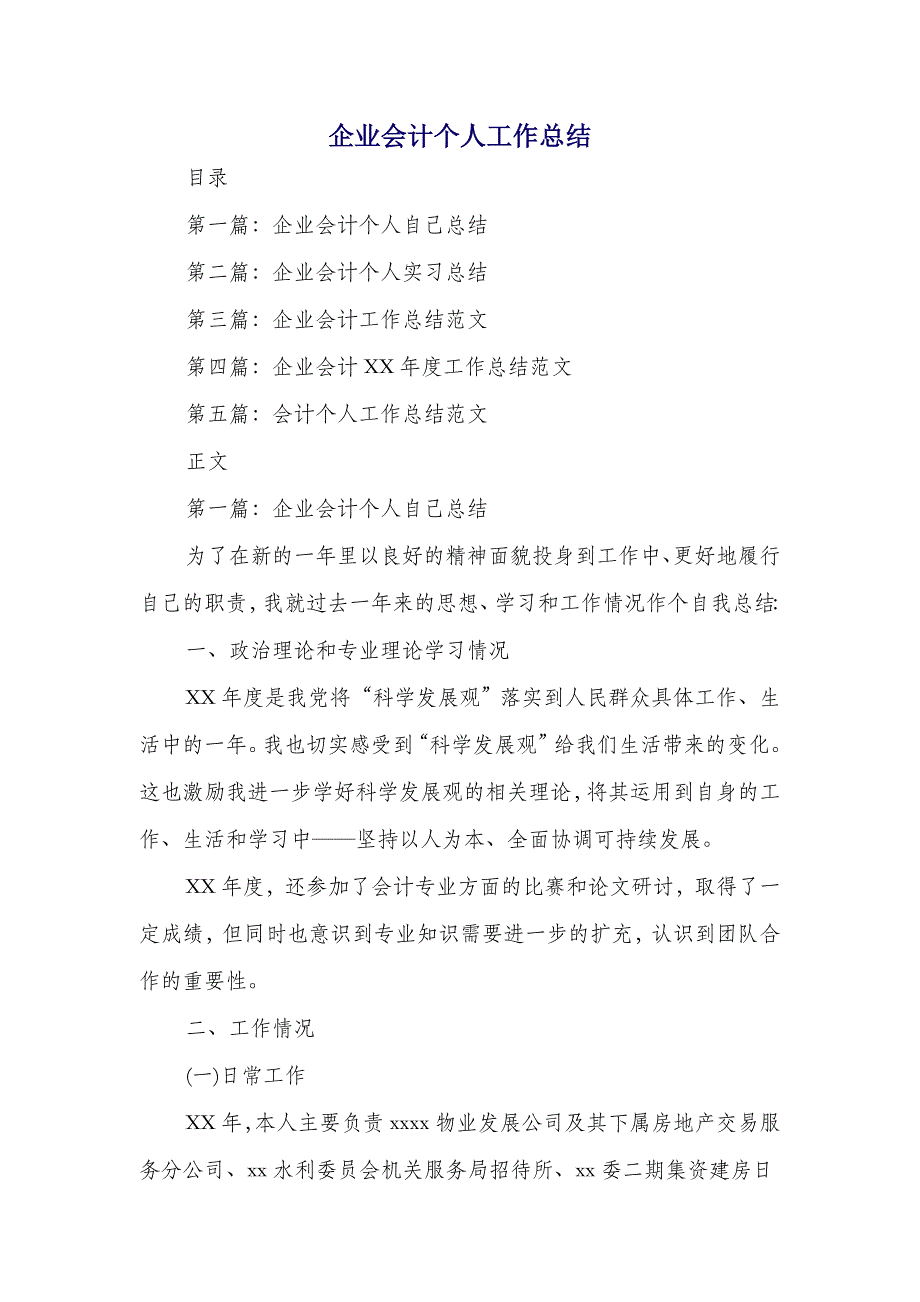 企业会计个人工作总结
目录
第一篇：企业会计个人自己总结
第二篇：企业会计个人实习总结
第三篇：企业会计工作总结范文
第四篇：企业会计 XX 年度工作总结范文
第五篇：会计个人工作总结范文
正文
第一篇：企业会计个人自己总结
为了在新的一年里以良好的精神面貌投身到工作中、更好地履行
自己的职责，我就过去一年来的思想、学习和工作情况作个自我总结：
一、政治理论和专业理论学习情况
XX 年度是我党将“科学发展观”落实到人民群众具体工作、生
活中的一年。我也切实感受到“科学发展观”给我们生活带来的变化。
这也激励我进一步学好科学发展观的相关理论，将其运用到自身的工
作、生活和学习中——坚持以人为本、全面协调可持续发展。
XX 年度，还参加了会计专业方面的比赛和论文研讨，取得了一
定成绩，但同时也意识到专业知识需要进一步的扩充，认识到团队合
作的重要性。
二、工作情况
(一)日常工作
XX 年，本人主要负责 xxxx 物业发展公司及其下属房地产交易服
务分公司、xx 水利委员会机关服务局招待所、xx 委二期集资建房日